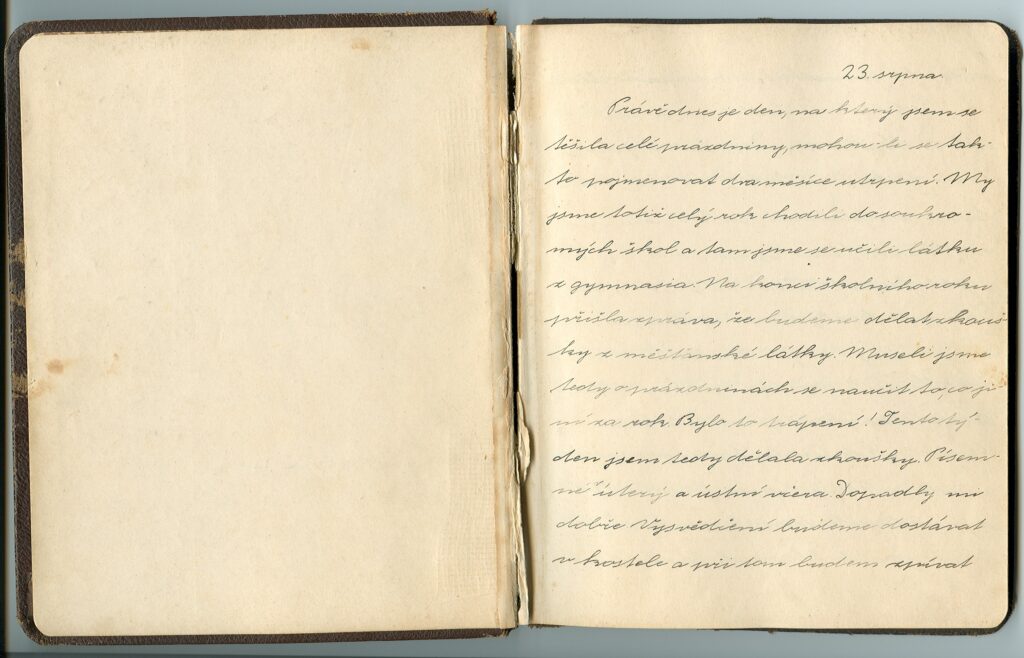 23. srpna.
Právě dnes je den, na který jsem se
těšila celé prázdniny, mohou-li se tak-
to pojmenovat dva měsíce utrpení. My
jsme totiž celý rok chodili do soukro-
mých škol a tam jsme se učili látku
z gymnasia. Na konci školního roku
přišla zpráva, že budeme dělat zkouš-
ky z měšťanské látky. Museli jsme
tedy o prázdninách se naučit to, co ji-
ní za rok. Bylo to trápení! Tento tý-
den jsem tedy dělala zkoušky. Písem-
né úterý a ústní včera. Dopadly mi
dobře. Vysvědčení budeme dostávat
v kostele a při tom budem zpívat